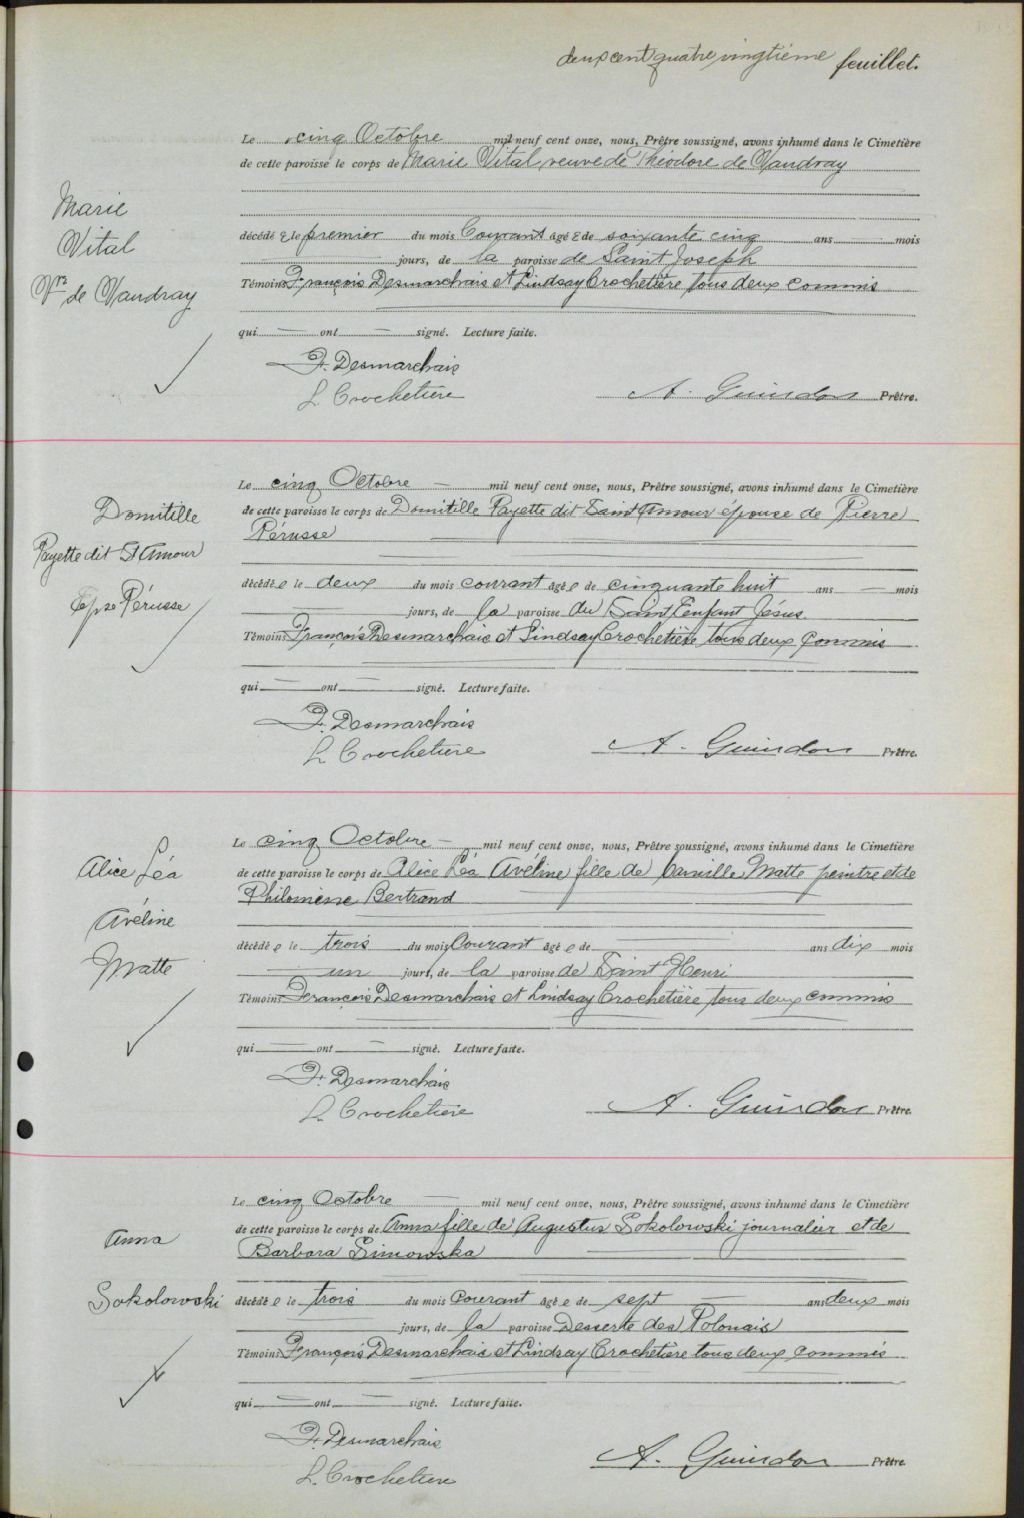 deux cent quatre vingtième feuillet.
Le cinq Octobre mil neuf cent onze, nous, Prêtre soussigné, avons inhumé dans le Cimetière
de cette paroisse le corps de Marie Vital veuve de Théodore de Vaudray
Marie
Vital
Vve de Vaudray
décédée le premier du mois Courant âgée de soixante cinq ans mois
jours, de la paroisse de Saint Joseph
Témoins François Desmarchais et Lindsay Crochetière tous deux commis
qui ont signé. Lecture faite.
F. Desmarchais
L. Crochetiere A. Guindon Prêtre.
Le cinq Octobre mil neuf cent onze, nous, Prêtre soussigné, avons inhumé dans le Cimetière
de cette paroisse le corps de Domitille Payette dit Saint Amour épouse de Pierre
Pérusse
Domitille
Payette dit St Amour
Epse Pérusse
décédée le deux du mois courant âgée de cinquante huit ans mois
jours, de la paroisse du Saint Enfant Jésus.
Témoins François Desmarchais et Lindsay Crochetière tous deux commis
qui ont signé. Lecture faite.
F. Desmarchais
L. Crochetiere A. Guindon Prêtre.
Le cinq Octobre mil neuf cent onze, nous, Prêtre soussigné, avons inhumé dans le Cimetière
de cette paroisse le corps de Alice Léa Avéline fille de Camille Matte peintre et de
Philomène Bertrand
Alice Léa
Avéline
Matte
décédée le trois du mois Courant âgée de ans dix mois
un jours, de la paroisse de Saint Henri
Témoins François Desmarchais et Lindsay Crochetière tous deux commis
qui ont signé. Lecture faite.
F. Desmarchais
L. Crochetiere A. Guindon Prêtre.
Le cinq Octobre mil neuf cent onze, nous, Prêtre soussigné, avons inhumé dans le Cimetière
de cette paroisse le corps de Anna fille de Augustus Sokolowski journalier et de
Barbara Simowska
Anna
Sokolowski
décédée le trois du mois Courant âgée de sept ans deux mois
jours, de la paroisse Desserte des Polonais
Témoins François Desmarchais et Lindsay Crochetiere tous deux commis
qui ont signé. Lecture faite.
F. Desmarchais
L. Crochetiere A. Guindon Prêtre.